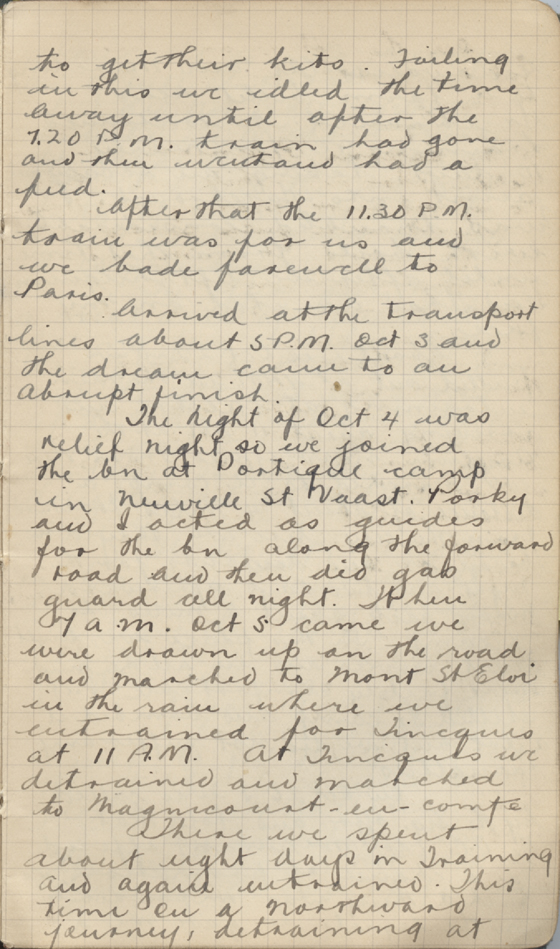 to get their kits. Failing
in this we idled the time
away until after the
7.20 P.M. train had gone
and then went and had a
feed.
After that the 11.30 P.M.
train was for us and
we bade farewell to
Paris.
Arrived at the transport
lines about 5 P.M. Oct 3 and
the dream came to an
abrupt finish.
The night of Oct 4 was
relief night so we joined
the bn at Portique camp
in Neuville St Vaast. Porky
and I acted as guides
for the bn along the forward
road and then did gas
guard all night. When
7 a.m. Oct 5 came we
were drawn up on the road
and marched to Mont St Eloi
in the rain where we
entrained for Tincques
at 11 A.M. At Tincques we
detrained and marched
to Magnicourt-en-comte
There we spent
about eight days in Training
and again entrained. This
time on a northward
journey, detraining at